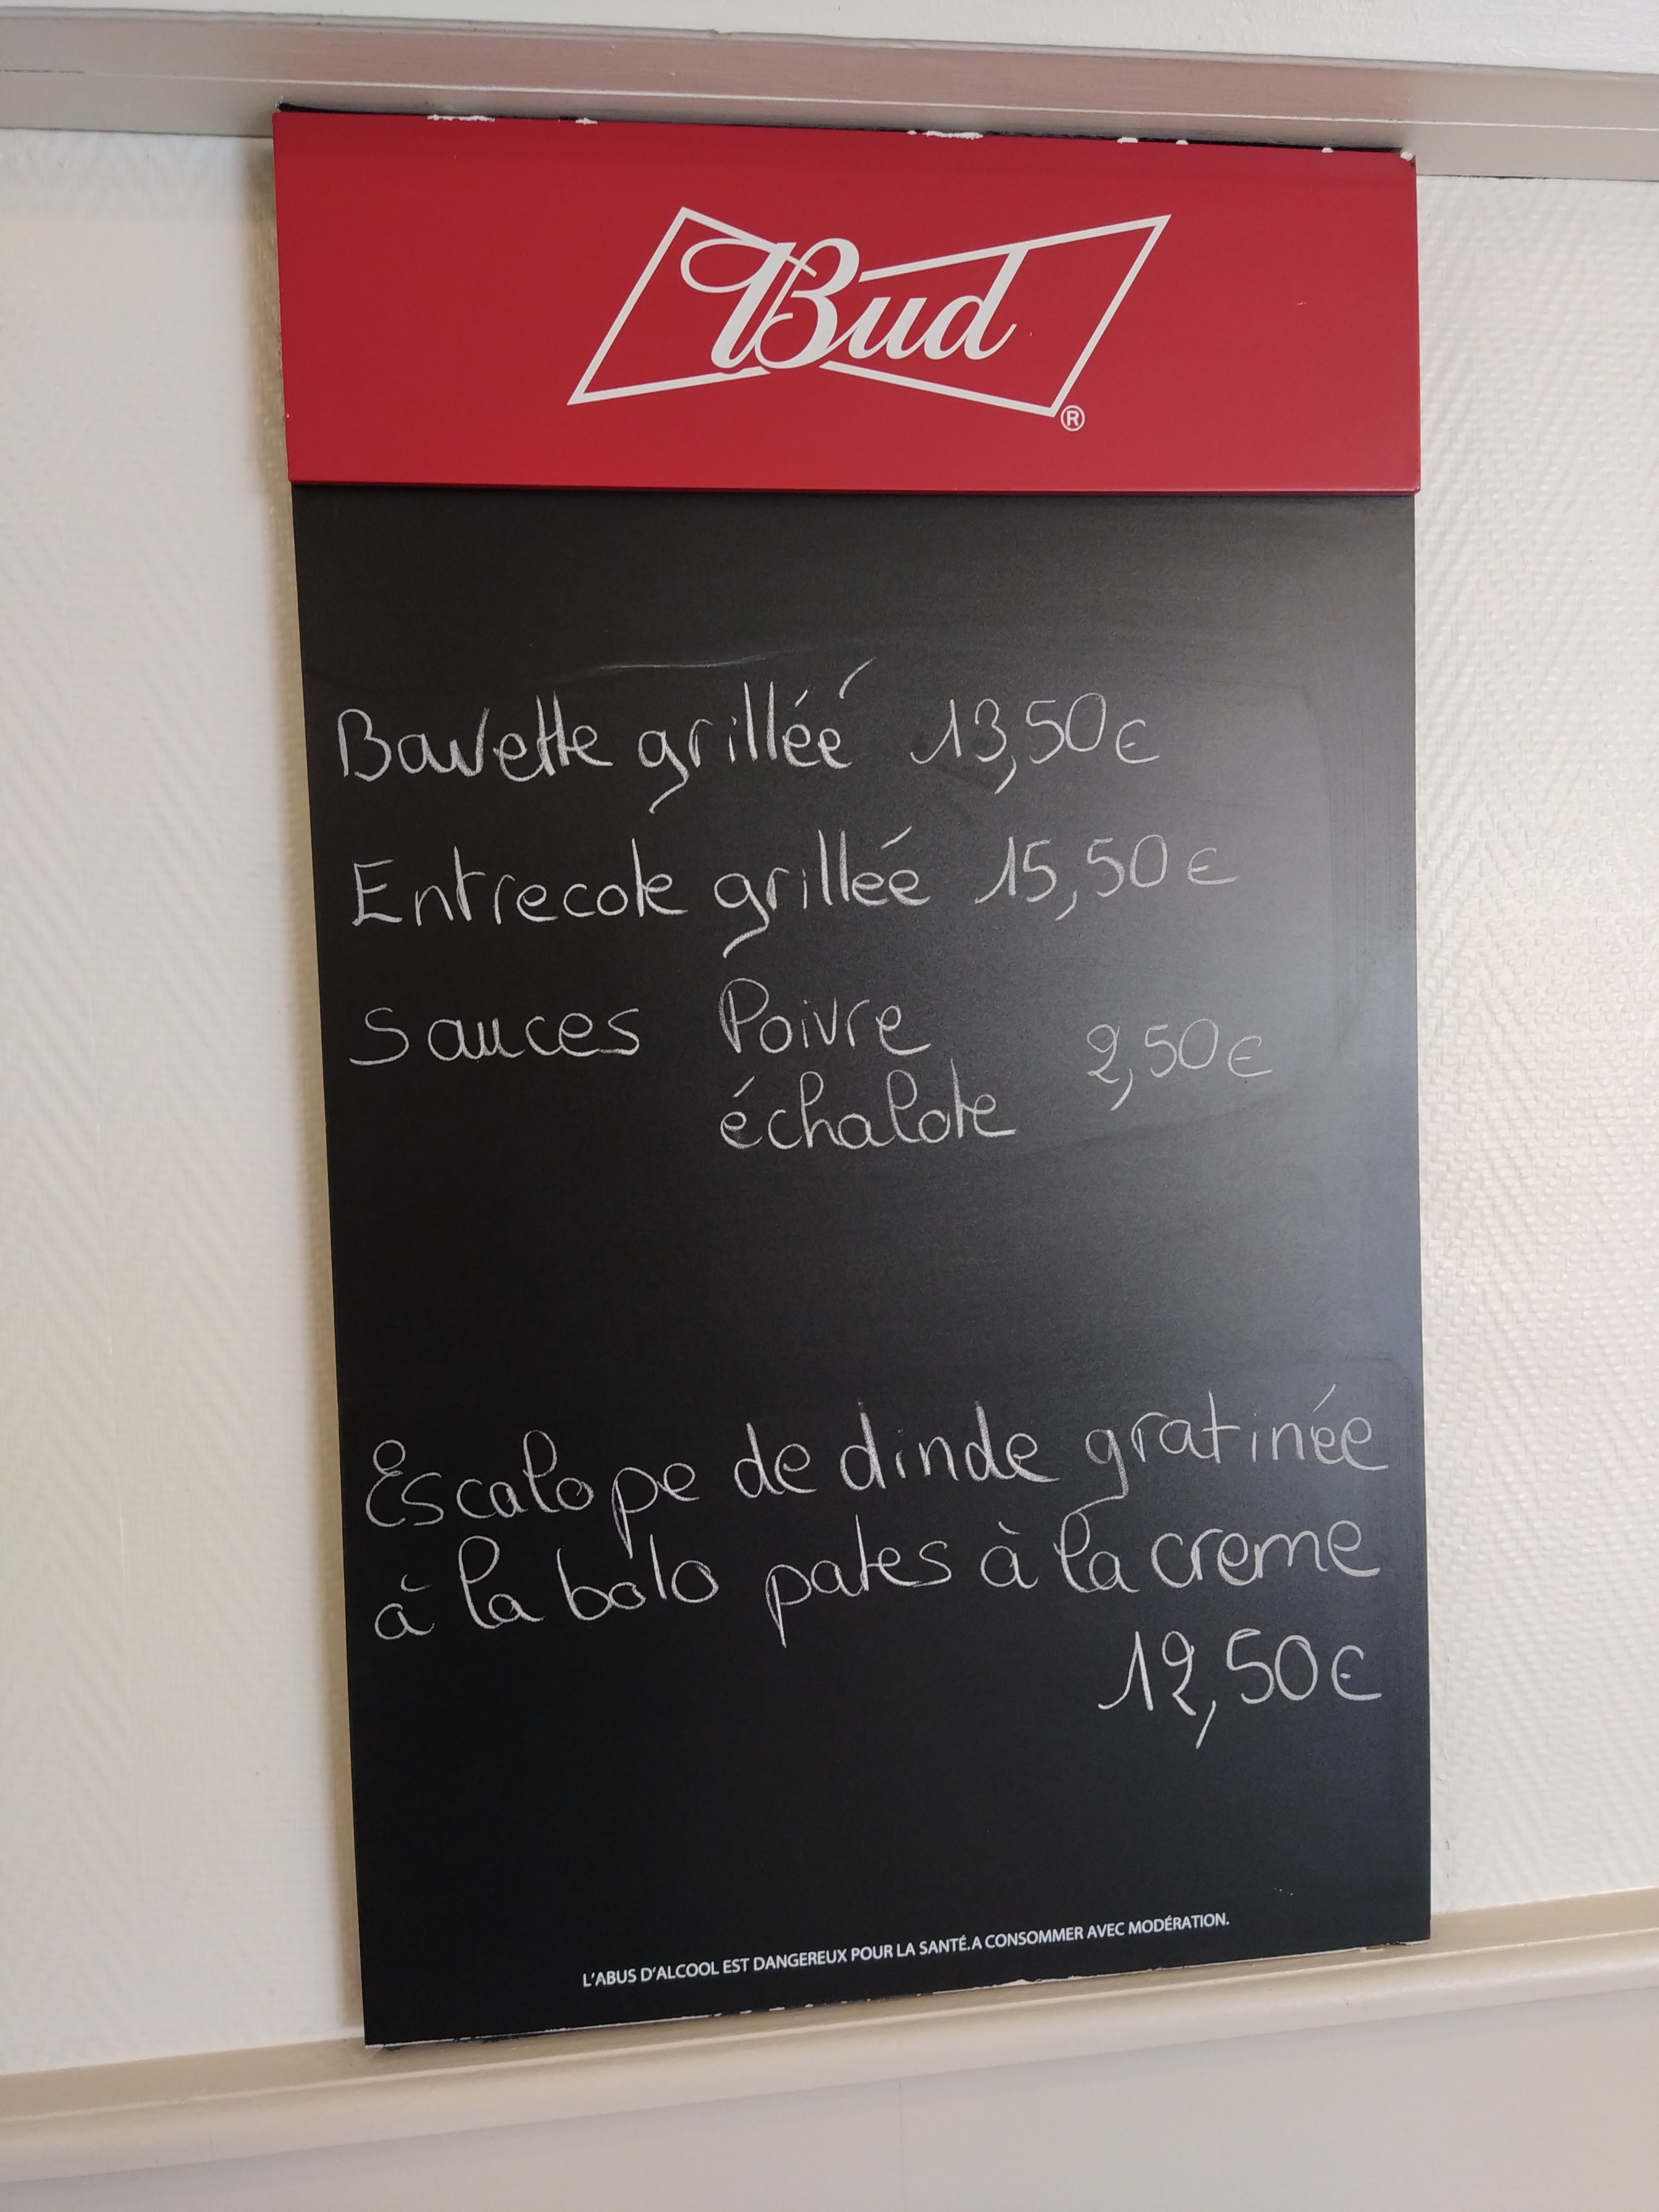 Bud
®
Bavette grillée 13,50€
Entrecote grillée 15,50€
Sauces Poivre 2,50€
échalote
Escalope de dinde gratinée
à la bolo pates à la creme
12,50€
L'ABUS D'ALCOOL EST DANGEREUX POUR LA SANTÉ.A CONSOMMER AVEC MODÉRATION.